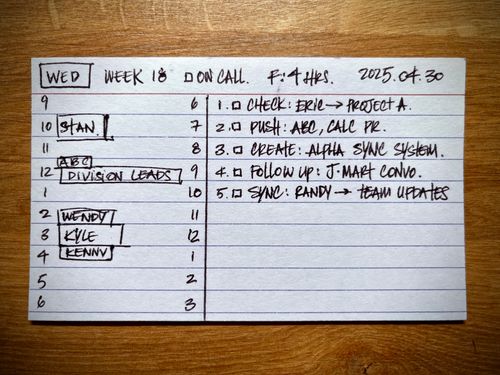 WED WEEK 18 □ ON CALL. F: 4 HRS. 2025.04.30
9 6 1. □ CHECK: ERIC → PROJECT A.
10 STAN. 7 2. □ PUSH: ABC, CALC PR.
11 8 3. □ CREATE: ALPHA SYNC SYSTEM.
ABC
12 DIVISION LEADS 9 4. □ FOLLOW UP: J-MART CONVO.
1 10 5. □ SYNC: RANDY → TEAM UPDATES
2 WENDY 11
3 KYLE 12
4 KENNY 1
5 2
6 3